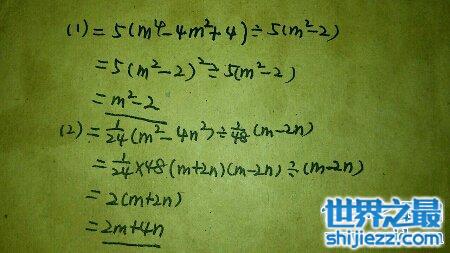 (1) = 5(m⁴-4m²+4)÷5(m²-2)
= 5(m²-2)²÷5(m²-2)
= m²-2
(2) = 1/24(m²-4n²)÷1/48(m-2n)
= 1/24×48(m+2n)(m-2n)÷(m-2n)
= 2(m+2n)
= 2m+4n
世界之最
shijiezzi.com